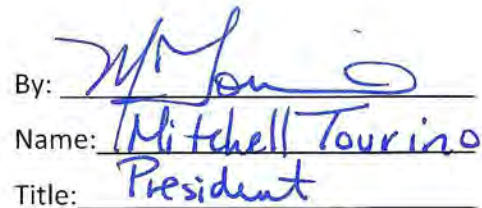 By:
Name: Mitchell Tourino
Title: President